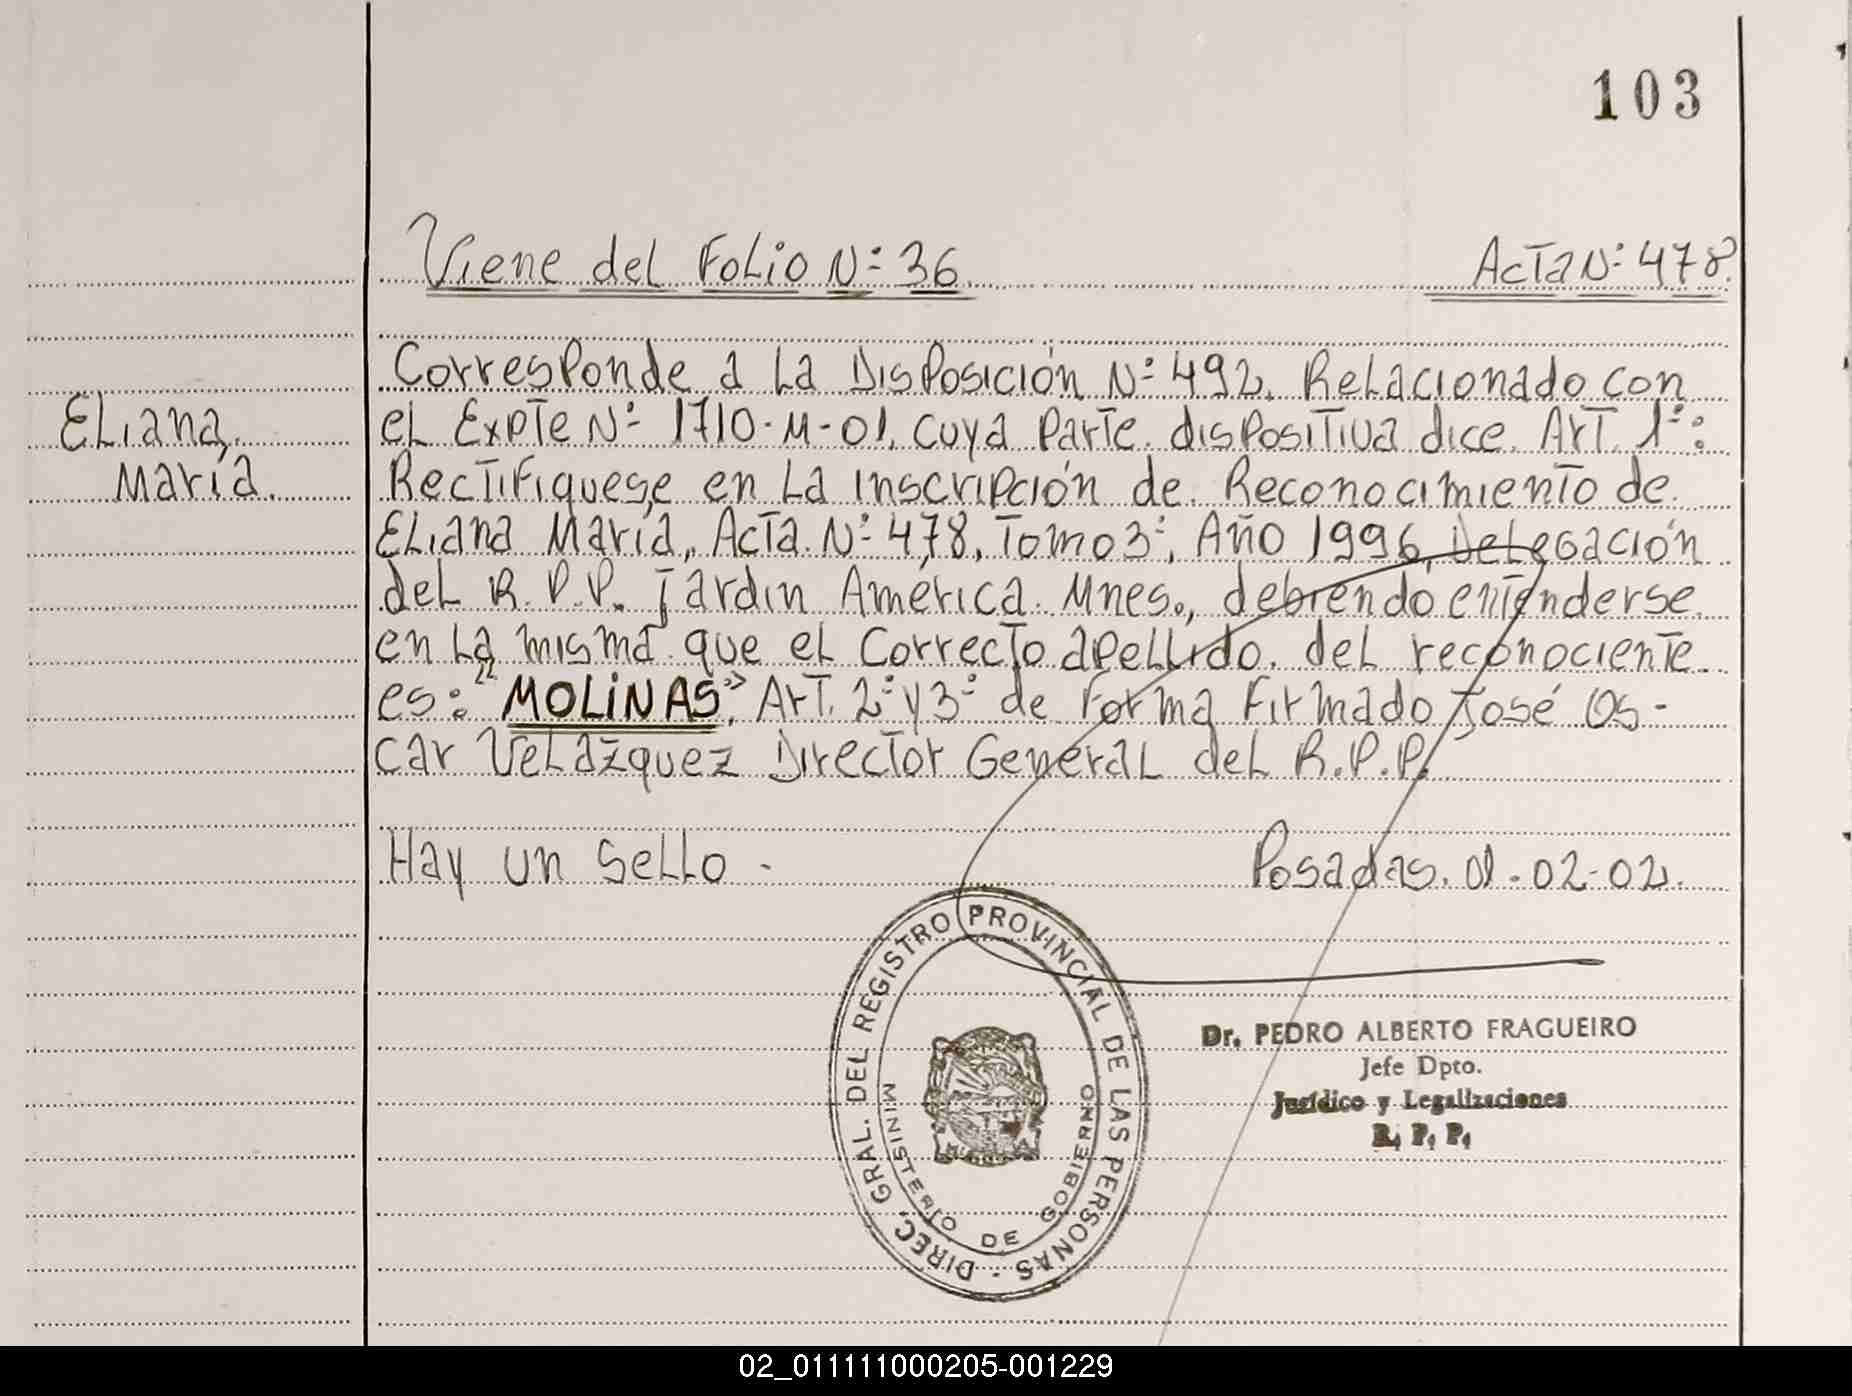 103
Viene del Folio Nº 36.
Acta Nº 478.
Eliana,
María.
Corresponde a la Disposición Nº 492. Relacionado con
el Expte Nº 1710-M-01, cuya parte dispositiva dice. Art. 1º:
Rectifiquese, en la inscripción de Reconocimiento de
Eliana María, Acta Nº 478, Tomo 3º, Año 1996, Delegación
del R.P.P. Jardin América. Mnes., debiendo entenderse
en la misma que el correcto apellido del reconociente
es: "MOLINAS", Art. 2º y 3º de forma Firmado José Os-
car Velázquez Director General del R.P.P.
Hay un sello.
Posadas, 01-02-02.
DIREC. GRAL. DEL REGISTRO PROVINCIAL DE LAS PERSONAS -
MINISTERIO DE GOBIERNO
Dr. PEDRO ALBERTO FRAGUEIRO
Jefe Dpto.
Jurídico y Legalizaciones
R. P. P.
02_011111000205-001229